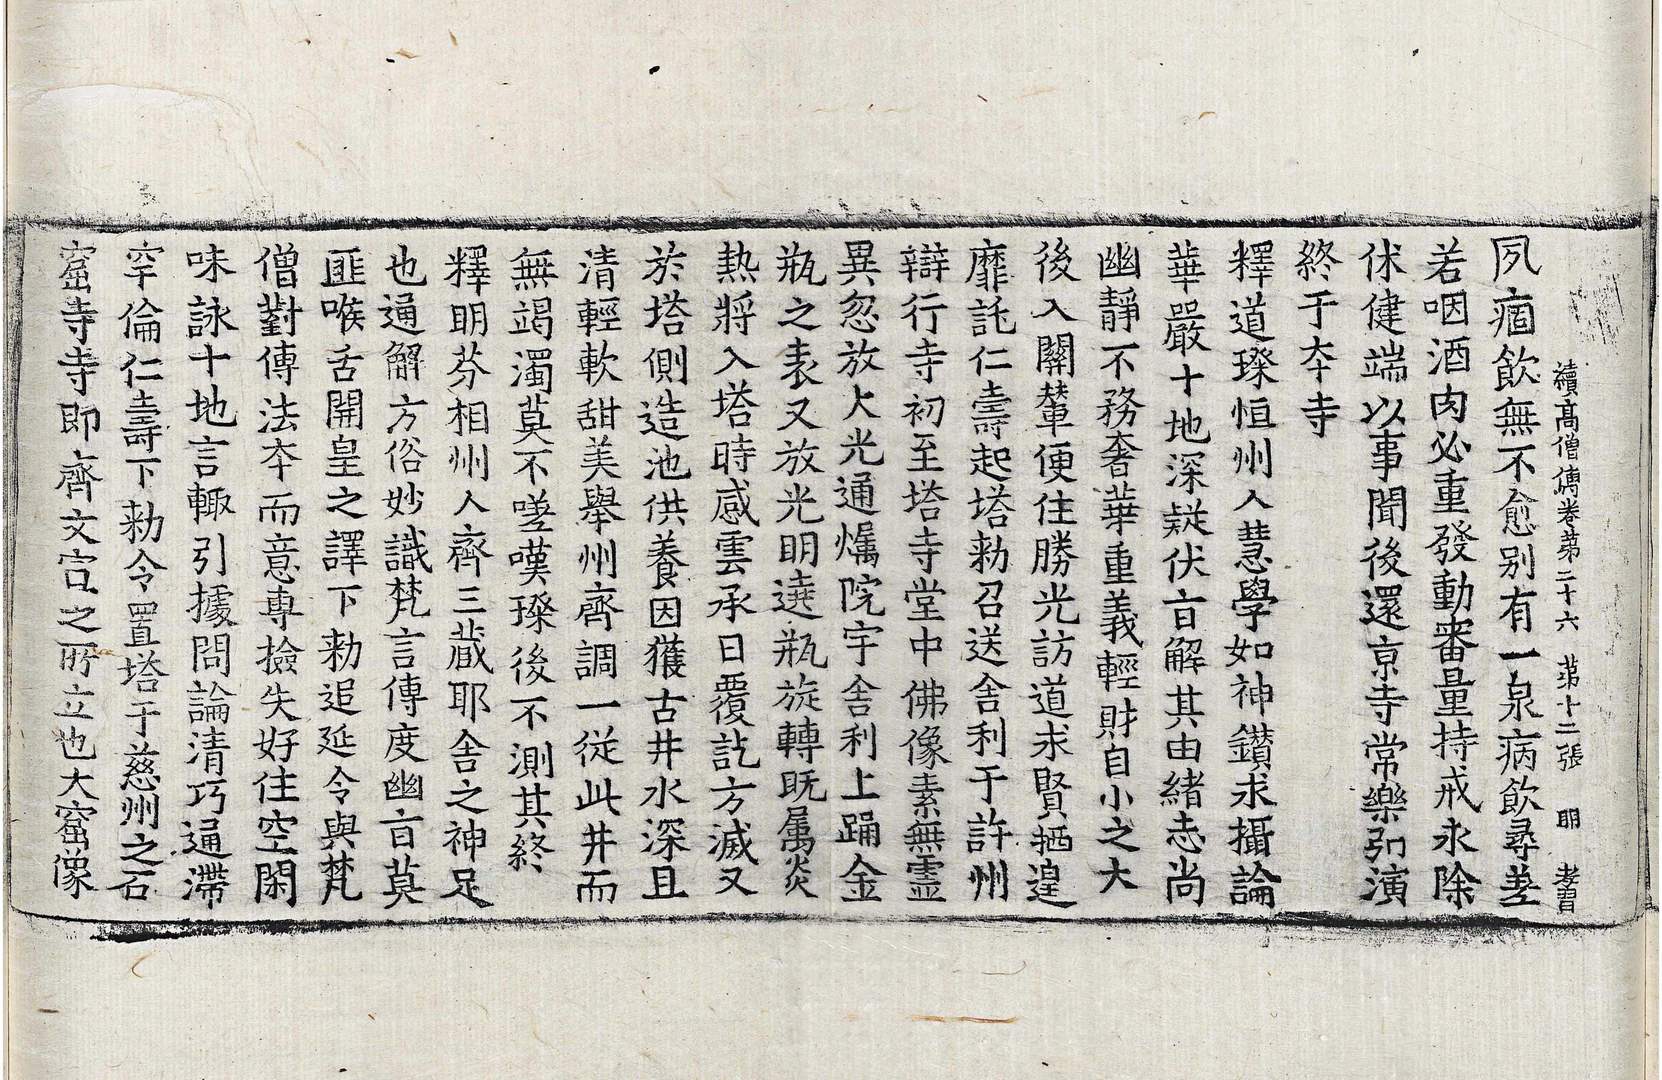 續高僧傳卷第二十六　第十二張　明　孝曹
夙痼飮無不愈别有一泉病飮尋差
若咽酒肉必重發動審量持戒永除
休健端以事聞後還京寺常樂弘演
終于本寺
釋道璨恒州人慧學如神鑚求攝論
華嚴十地深疑伏旨解其由緖志尚
幽靜不務奢華重義輕財自小之大
後入關輦便住勝光訪道求賢栖遑
靡託仁壽起塔勑召送舍利于許州
辯行寺初至塔寺堂中佛像素無靈
異忽放大光通爥院宇舍利上踊金
甁之表又放光明遶甁旋轉旣属炎
熱將入塔時感雲承日覆訖方滅又
於塔側造池供養因獲古井水深且
清輕軟甜美舉州齊調一從此井而
無竭濁莫不嗟嘆璨後不測其終
釋明芬相州人齊三藏耶舍之神足
也通解方俗妙識梵言傳度幽旨莫
匪喉舌開皇之譯下勑追延令與梵
僧對傳法本而意專撿失好住空閑
味詠十地言輙引據問論淸巧通滯
罕倫仁壽下勑令置塔于慈州之石
窟寺寺卽齊文宣之所立也大窟像